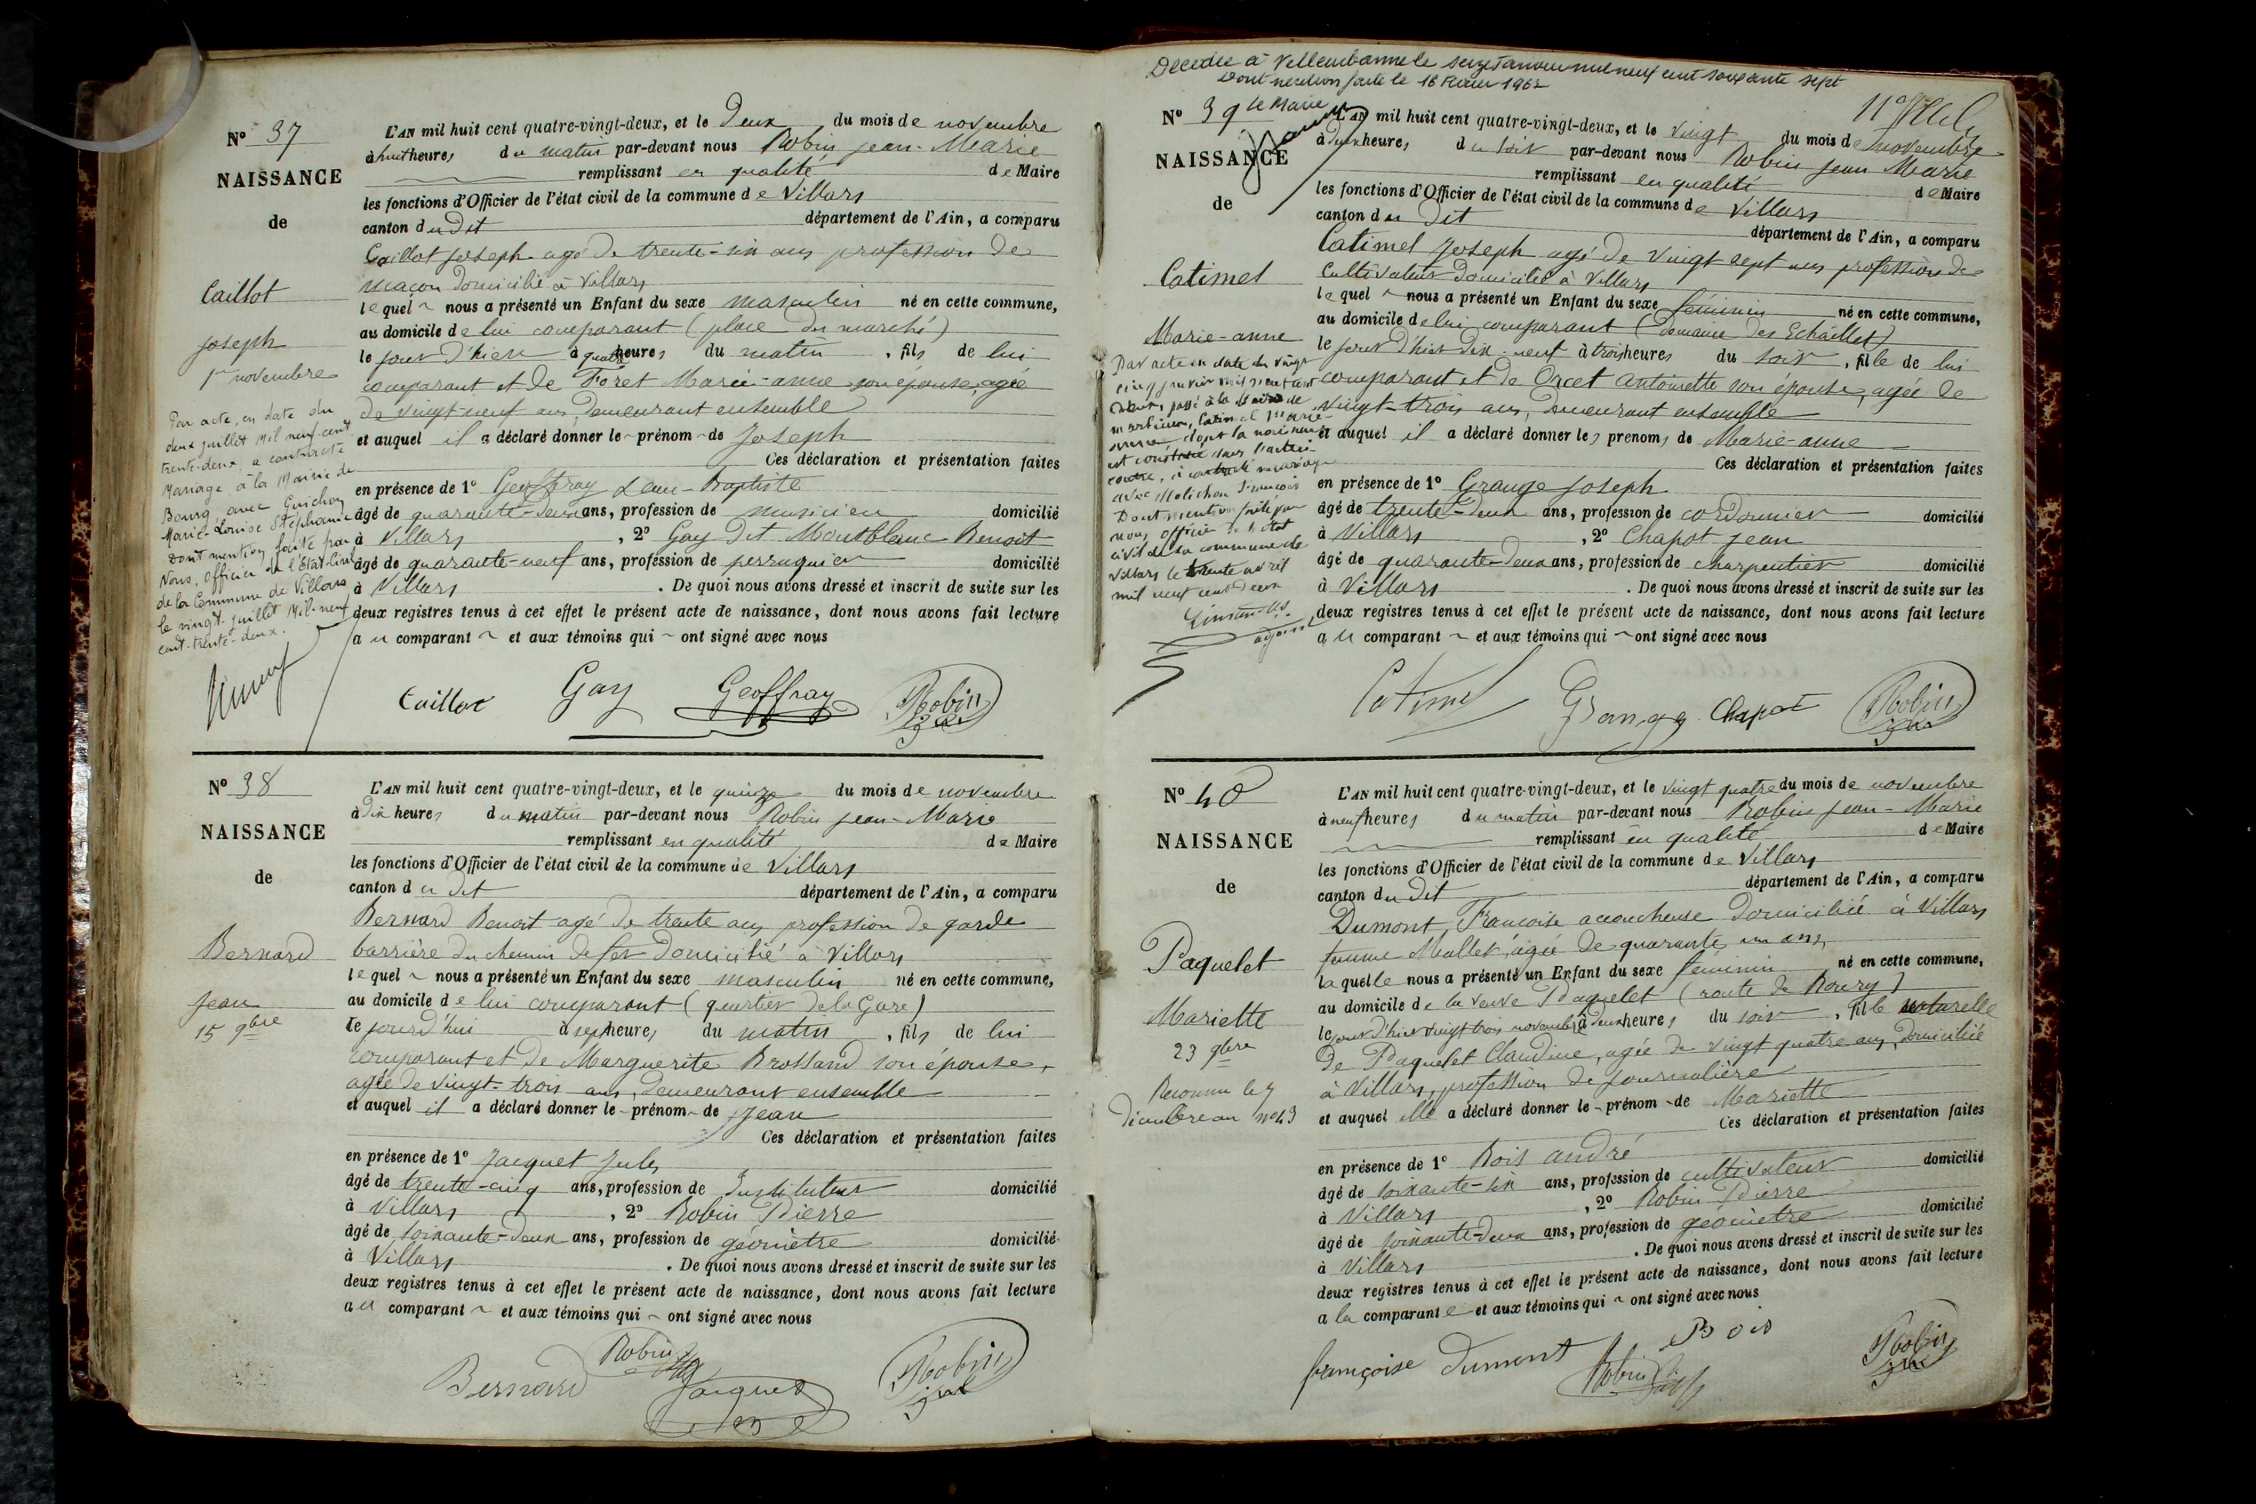 N° 37
NAISSANCE
de
Caillot
Joseph
1er novembre
Par acte, en date du
deux juillet Mil neuf cent
trente-deux, a contracté
Mariage à la Mairie de
Bourg avec Guichon
Marie-Louise Stéphanie
Dont mention faite par
Nous, Officier de l'Etat-Civil
de la Commune de Villars
le vingt juillet Mil-neuf
cent-trente-deux.
L'AN mil huit cent quatre-vingt-deux, et le Deux du mois de novembre
à huit heures du matin par-devant nous Robin Jean-Marie
remplissant en qualité de Maire
les fonctions d'Officier de l'état civil de la commune de Villars
canton du dit département de l'Ain, a comparu
Caillot Joseph agé de trente-six ans profession de
maçon domicilié à Villars
lequel nous a présenté un Enfant du sexe masculin né en cette commune,
au domicile de lui comparant (place du marché)
le jour d'hier à quatre heures du matin, fils de lui
comparant et de Foret Marie-anne son épouse, agée
de vingt neuf ans, demeurant ensemble
et auquel il a déclaré donner le prénom de Joseph
Ces déclaration et présentation faites
en présence de 1° Geoffray Jean-Baptiste
âgé de quarante-deux ans, profession de musicien domicilié
à Villars, 2° Gay dit Montblanc Benoit
âgé de quarante-neuf ans, profession de perruquier domicilié
à Villars. De quoi nous avons dressé et inscrit de suite sur les
deux registres tenus à cet effet le présent acte de naissance, dont nous avons fait lecture
au comparant et aux témoins qui ont signé avec nous
Caillot Gay Geoffray Robin
N° 38
NAISSANCE
de
Bernard
Jean
15 9bre
L'AN mil huit cent quatre-vingt-deux, et le quinze du mois de novembre
à dix heures du matin par-devant nous Robin Jean-Marie
remplissant en qualité de Maire
les fonctions d'Officier de l'état civil de la commune de Villars
canton du dit département de l'Ain, a comparu
Bernard Benoit agé de trente ans profession de garde
barrière du chemin de fer domicilié à Villars
lequel nous a présenté un Enfant du sexe masculin né en cette commune,
au domicile de lui comparant (quartier de la Gare)
le jourd'hui à sept heures du matin, fils de lui
comparant et de Marguerite Brossand son épouse,
agée de vingt-trois ans, demeurant ensemble
et auquel il a déclaré donner le prénom de Jean
Ces déclaration et présentation faites
en présence de 1° Jacquet Jules
âgé de trente-cinq ans, profession de Instituteur domicilié
à Villars, 2° Robin Pierre
âgé de soixante-deux ans, profession de géomètre domicilié
à Villars. De quoi nous avons dressé et inscrit de suite sur les
deux registres tenus à cet effet le présent acte de naissance, dont nous avons fait lecture
au comparant et aux témoins qui ont signé avec nous
Bernard Robin Jacquet Robin
Décédée à Villeurbanne le seize Janvier mil neuf cent soixante sept
Dont mention faite le 16 Février 1967
le Maire
N° 39
NAISSANCE
de
Catimel
Marie-anne
Par acte en date du vingt
cinq janvier mil neuf cent
deux, passé à la Mairie de
Catimel Marie-
anne dont la naissance
est constatée dans l'acte ci-
contre, a contracté mariage
avec Molichon François
Dont mention faite par
nous officier de l'état
civil de la commune de
Villars le trente avril
mil neuf cent deux
L'AN mil huit cent quatre-vingt-deux, et le vingt du mois de novembre
à deux heures du soir par-devant nous Robin Jean Marie
remplissant en qualité de Maire
les fonctions d'Officier de l'état civil de la commune de Villars
canton du dit département de l'Ain, a comparu
Catimel Joseph agé de vingt sept ans profession de
Cultivateur domicilié à Villars
lequel nous a présenté un Enfant du sexe féminin né en cette commune,
au domicile de lui comparant (domaine des Echaillet)
le jour d'hier dix-neuf à trois heures du soir, fille de lui
comparant et de Orcet Antoinette son épouse, agée de
vingt-trois ans, demeurant ensemble
et auquel il a déclaré donner les prenoms de Marie-anne
Ces déclaration et présentation faites
en présence de 1° Grange Joseph
âgé de trente-deux ans, profession de cordonnier domicilié
à Villars, 2° Chapot Jean
âgé de quarante-deux ans, profession de charpentier domicilié
à Villars. De quoi nous avons dressé et inscrit de suite sur les
deux registres tenus à cet effet le présent acte de naissance, dont nous avons fait lecture
au comparant et aux témoins qui ont signé avec nous
Catimel Grange Chapot Robin
N° 40
NAISSANCE
de
Paquelet
Mariette
23 9bre
Reconnu le 7
décembre au n° 43
L'AN mil huit cent quatre-vingt-deux, et le vingt quatre du mois de novembre
à neuf heures du matin par-devant nous Robin Jean-Marie
remplissant en qualité de Maire
les fonctions d'Officier de l'état civil de la commune de Villars
canton du dit département de l'Ain, a comparu
Dumont Françoise accoucheuse domiciliée à Villars
femme Mallet, agée de quarante un ans,
laquelle nous a présenté un Enfant du sexe féminin né en cette commune,
au domicile de la veuve Paquelet (route de Rouery)
le jour d'hier vingt trois novembre à deux heures du soir, fille naturelle
de Paquelet Claudine, agée de vingt quatre ans, domiciliée
à Villars, profession de journalière
et auquel elle a déclaré donner le prénom de Mariette
Ces déclaration et présentation faites
en présence de 1° Bois andré
âgé de soixante-six ans, profession de cultivateur domicilié
à Villars, 2° Robin Pierre
âgé de soixante-deux ans, profession de géomètre domicilié
à Villars. De quoi nous avons dressé et inscrit de suite sur les
deux registres tenus à cet effet le présent acte de naissance, dont nous avons fait lecture
a la comparante et aux témoins qui ont signé avec nous
françoise dumont Robin Bois Robin